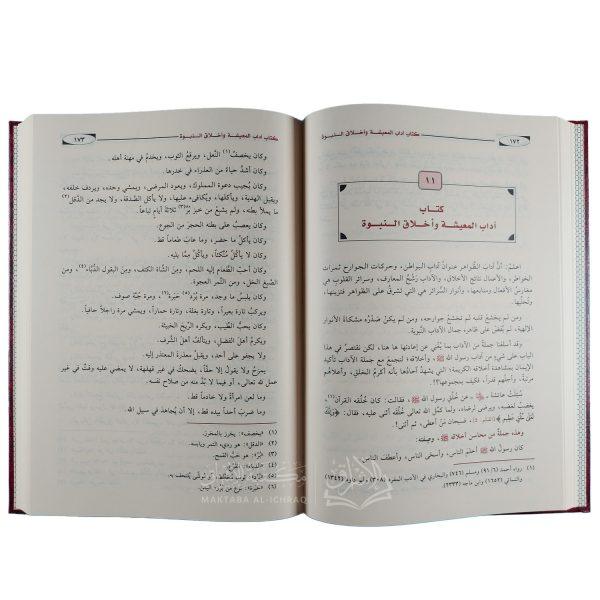 ١٧٢
كتاب آداب المعيشة وأخلاق النبوة
١١
كتاب
آداب المعيشة وأخلاق النبوة
اعلم: أنَّ آدابَ الظَّواهر عنوانُ آداب البواطن، وحركات الجوارح ثمرات
الخواطر، والأعمال نتائج الأخلاق، والآدابَ رَشْحُ المعارف، وسرائر القلوب هي
مغارسُ الأفعال ومنابعها، وأنوار السَّرائر هي التي تشرق على الظَّواهر فتزيِّنها،
وتُحلِّيها.
ومن لم يخشع قلبه لم تخشع جوارحه، ومن لم يكن صَدْرُه مشكاةَ الأنوار
الإلهية، لم يَفِضْ على ظاهره جمالُ الآداب النَّبوية.
وقد أسلفنا جملةً من الآداب بما يُغني عن إعادتها ها هنا، لكن نقتصرُ في هذا
الباب على شيءٍ من آداب رسول الله ﷺ وأخلاقه؛ لنجمعَ مع جملة الآداب تأكيد
الإيمان بمشاهدة أخلاقه الكريمة؛ التي يشهدُ آحادُها بأنه أكرمُ الخلق، وأعلاهُم
مرتبةً، وأجلهم قدراً، فكيف بمجموعها؟!
سُئلت عائشةُ عن خُلُق رسول الله ﷺ، فقالت: كان خُلُقه القرآنَ(١)،
يغضبُ لغضبه، ويرضى لرضاه، ولما كمَّل الله تعالى خُلُقَه أثنى عليه، فقال: ﴿وَإِنَّكَ
لَعَلَى خُلُقٍ عَظِيمٍ﴾ [القلم: ٤]، فسبحان مَنْ أعطى، ثم أثنى!
وهذه جملةٌ من محاسن أخلاقه ﷺ، وصفته:
كان رسولُ الله ﷺ أحلمَ الناس، وأسخى الناس، وأعطفَ الناس.
(١) رواه أحمد (٩١/٦) ومسلم (٧٤٦) والبخاري في الأدب المفرد (٣٠٨) وأبو داود (١٣٤٢)
والنسائي (١٦٥٢) وابن ماجه (٢٣٣٣).
كتاب آداب المعيشة وأخلاق النبوة
١٧٣
وكان يخصفُ(١) النَّعل، ويرقعُ الثوب، ويخدمُ في مهنة أهله.
وكان أشدَّ حياءً من العذراء في خدرها.
وكان يُجيب دعوة المملوك، ويعود المرضى، ويمشي وحده، ويردف خلفه،
ويقبل الهدية، ويأكلها، ويكافئ عليها، ولا يأكل الصَّدقة، ولا يجد من الدَّقل(٢)
ما يملأ بطنَه، ولم يشبع من خبز بُرٍّ(٣) ثلاثةَ أيام تباعاً.
وكان يعصبُ على بطنه الحجرَ من الجوع.
وكان يأكلُ ما حضر، وما عابَ طعاماً قط.
وكان لا يأكلُ مُتَّكئاً، ويأكلُ ممَّا يليه.
وكان أحبَّ الطَّعام إليه اللحم، ومنَ الشَّاة الكتف، ومنَ البقول الدُّبَّاء(٤)، ومن
الصِّبغ الخل، ومن التَّمر العجوة.
وكان يلبسُ ما وجد، مرة بُرْدةً(٥) حَبِرة(٦)، ومرة جبَّة صوف.
ويركبُ تارةً بعيراً، وتارة بغلة، وتارة حماراً، ويمشي مرة راجلاً حافياً.
وكان يحبُّ الطِّيب، ويكره الرِّيح الخبيثة.
ويكرمُ أهلَ الفضل، ويتألفُ أهلَ الشَّرف.
ولا يجفو على أحد، ويقبلُ معذرة المعتذر إليه.
يمزحُ ولا يقول إلا حقَّاً، يضحكُ في غير قهقهة، لا يمضي عليه وقتٌ في غير
عمل لله تعالى، أو فيما لا بُدَّ منه من صلاح نفسه.
وما لعن امرأةً ولا خادماً قط.
وما ضربَ أحداً بيده قط، إلا أن يُجاهدَ في سبيل الله.
(١) «يخصف»: يخرز بالمخرز.
(٢) «الدقل»: هو رديء التمر ويابسه.
(٣) «البُرّ»: هو حَبُّ القمح.
(٤) «الدُّبَّاء»: القرع.
(٥)
(٦) «حَبِرة»: نوع من برود اليمن.
MAKTABA AL-ICHRAQ